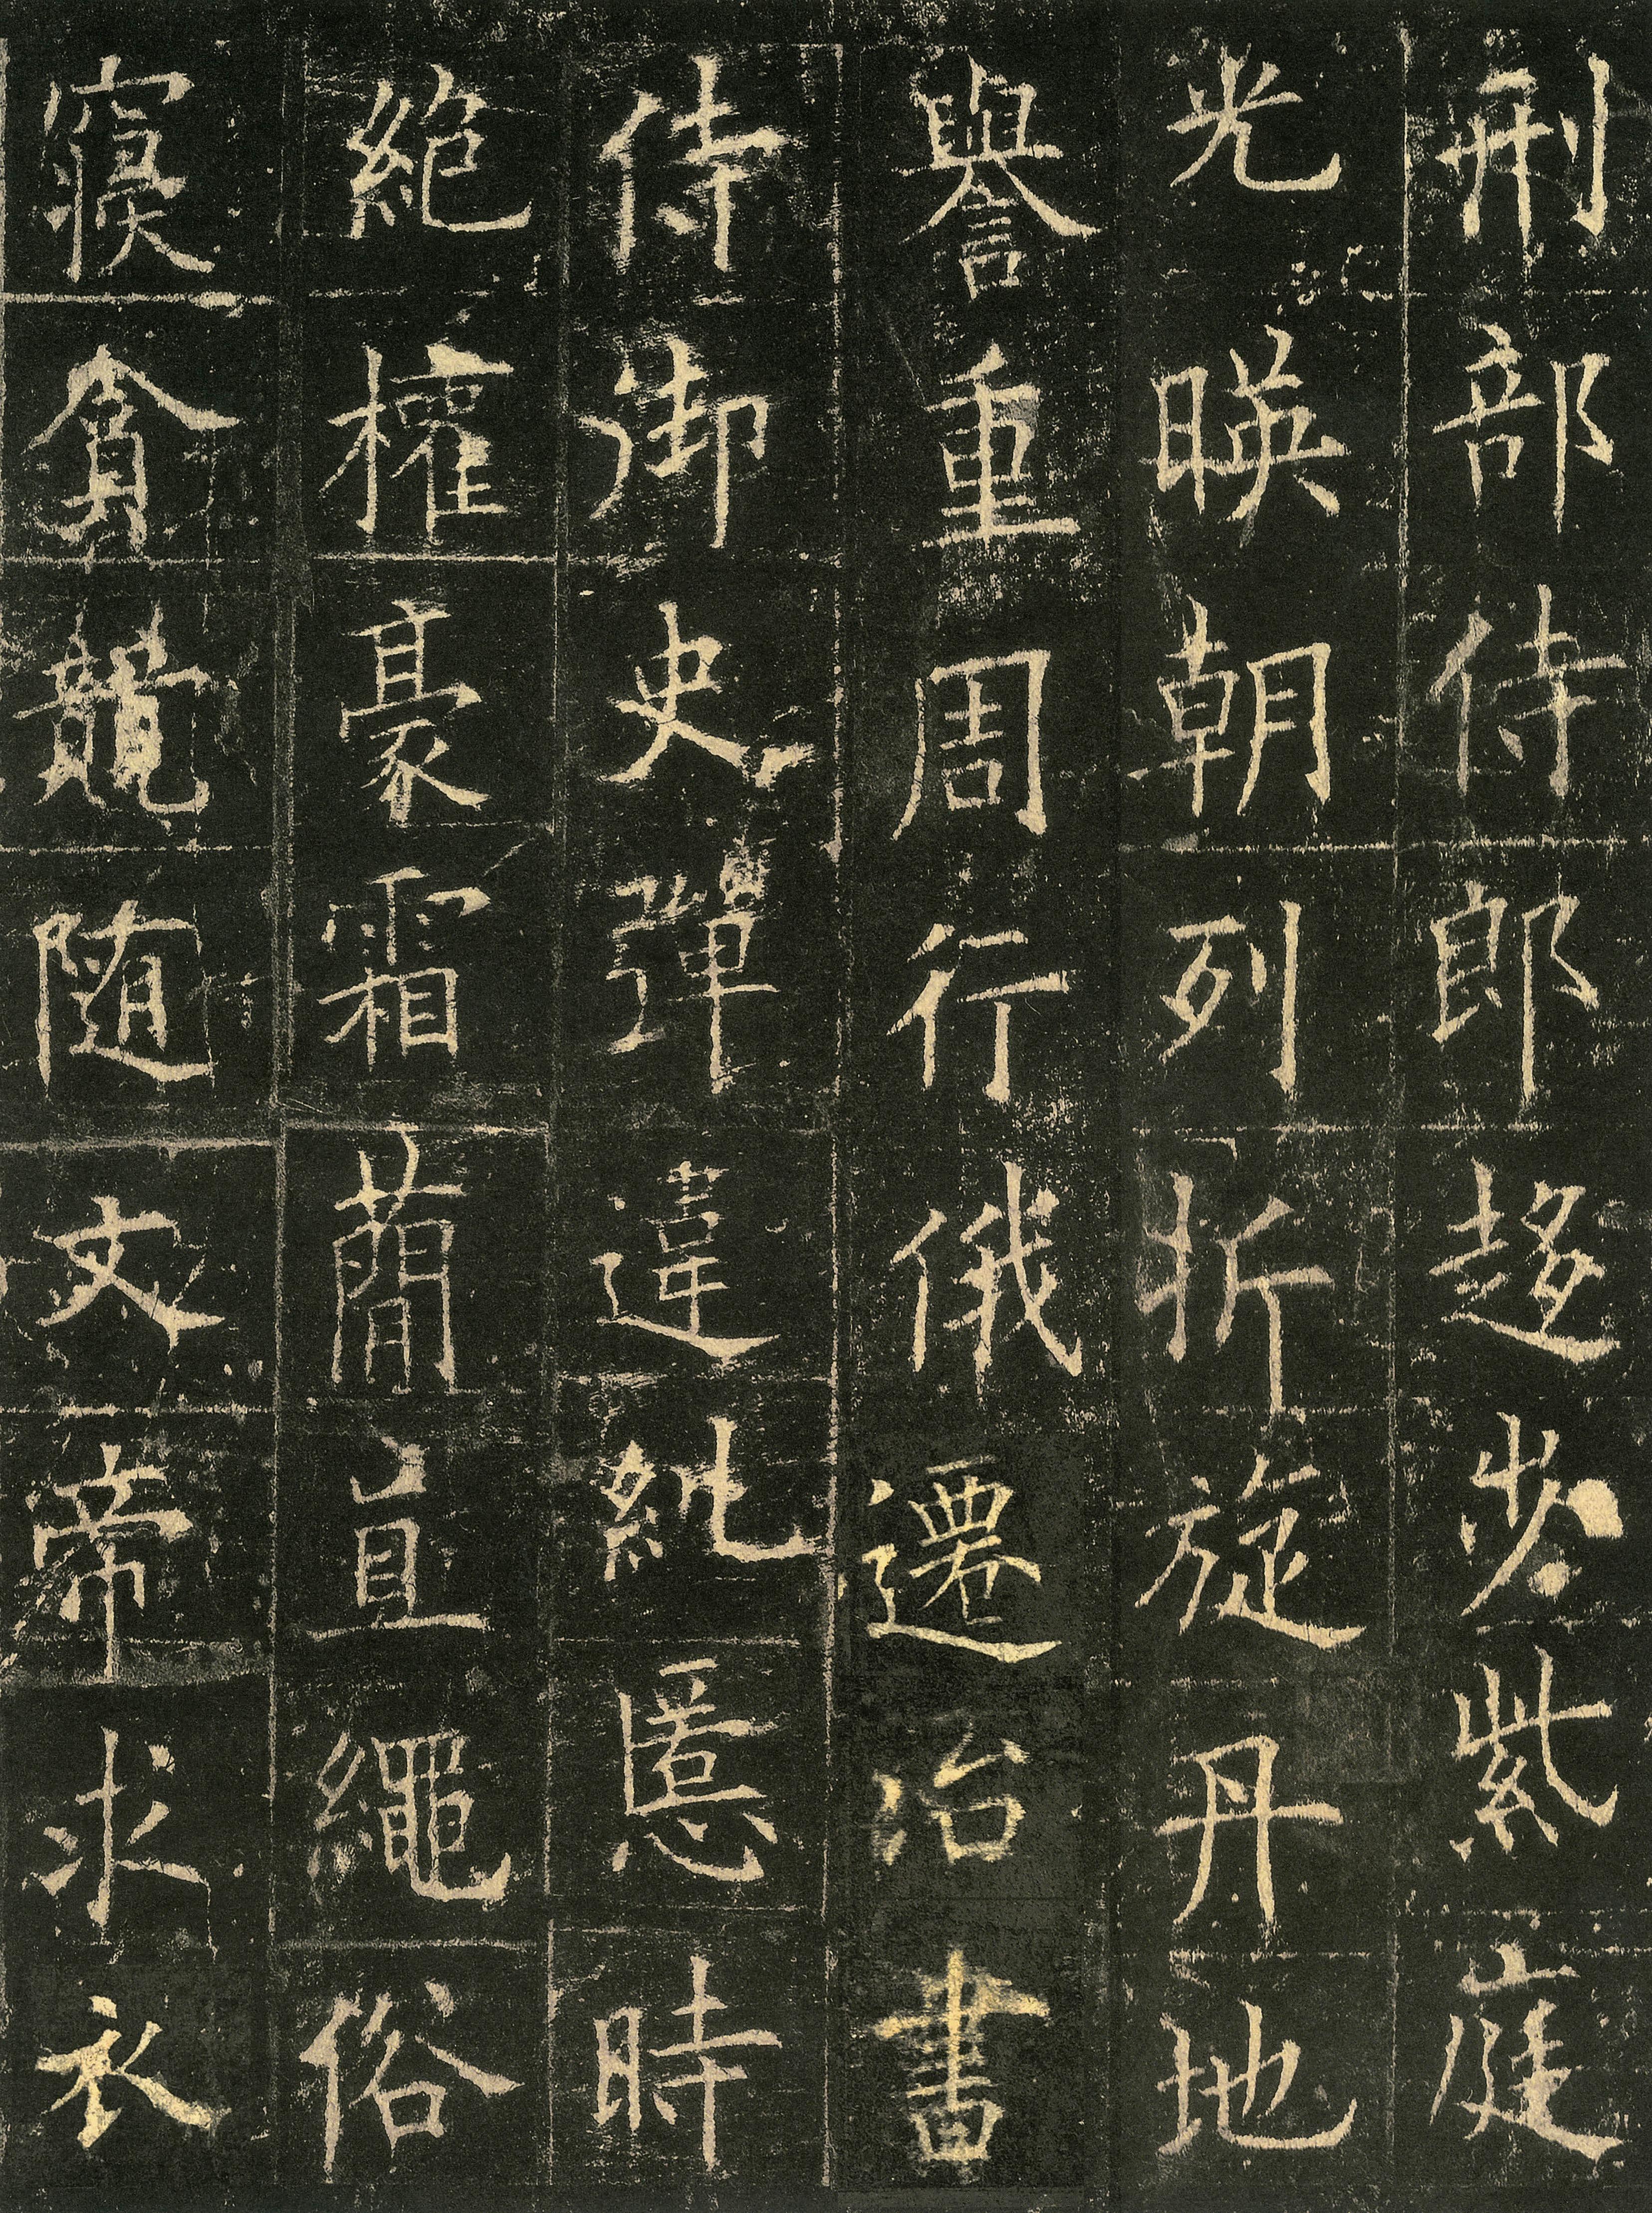 刑部侍郎趍步紫庭
光暎朝列折旋丹地
譽重周行俄遷治書
侍御史彈違糺慝時
絶權豪霜簡直繩俗
寢貪競随文帝求衣